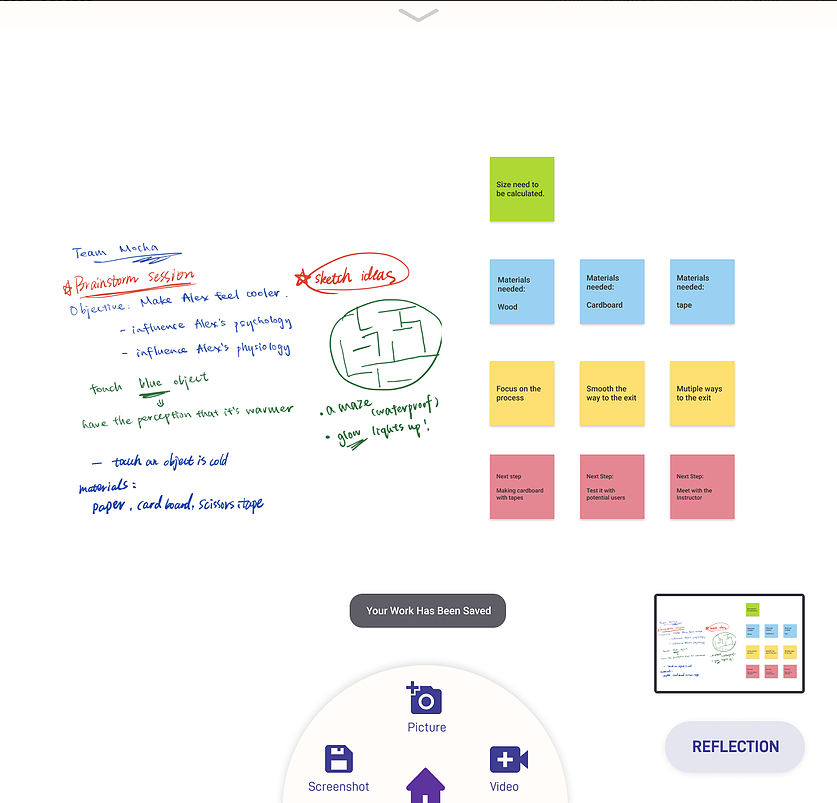 Team Mocha
Brainstorm session
Objective: Make Alex feel cooler.
- influence Alex's psychology
- influence Alex's physiology
touch blue object
have the perception that it's warmer
- touch an object is cold
materials:
paper, card board, scissors, tape
sketch ideas
• a maze (waterproof)
• glow lights up!
Size need to
be calculated.
Materials
needed:
Wood
Materials
needed:
Cardboard
Materials
needed:
tape
Focus on the
process
Smooth the
way to the exit
Mutiple ways
to the exit
Next step
Making cardboard
with tapes
Next Step:
Test it with
potential users
Next Step:
Meet with the
Instructor
Your Work Has Been Saved
Picture
Screenshot
Video
REFLECTION